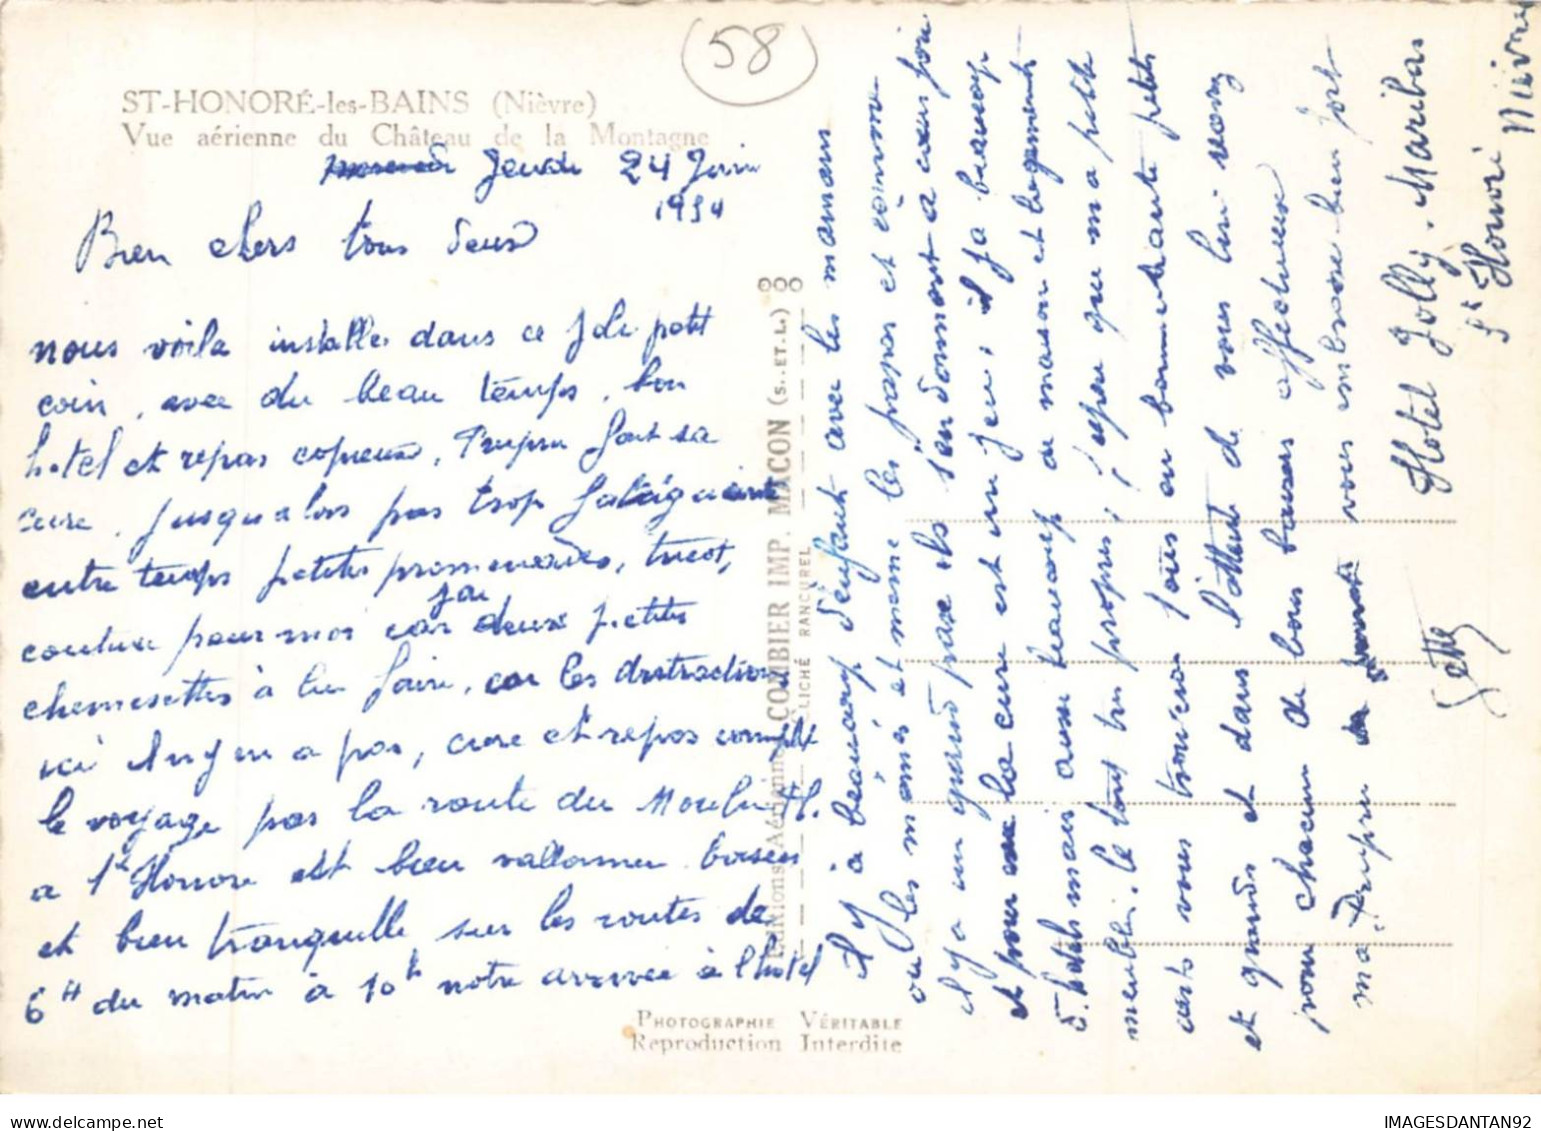 (58)
ST-HONORÉ-les-BAINS (Nièvre)
Vue aérienne du Château de la Montagne
Jeudi 24 Juin
1954
Bien chers tous deux
nous voila installes dans ce Joli petit
coin, avec du beau temps, bon
hotel et repas copieux, fait sa
cure, Jusqu'alors pas trop
entre temps petites promenades, tricot,
couture pour moi car J'ai deux petites
chemisettes à lui faire, car les distractions
ici il n'y en a pas, cure et repos complet
le voyage par la route du Moulin
a St Honore est bien vallonnee boisée
et bien tranquille sur les routes de
6H du matin à 10h notre arrivée à l'hotel
il y a beaucoup d'enfants avec les mamans
ou les mémés et même les papas et comme
il y a un grand parc ils s'en donnent a cœur joie
et pour la cure est un jeu, il y a beaucoup
d'hotels mais aussi beaucoup de maison et logements
meublés. le tout tres propres, J'espère que ma petite
carte vous trouvera tous en bonne sante petits
et grands et dans l'attente de vous lire recevez
pour chacun de bons baisers affectueux
ma vous embrasse bien fort
Hotel Jolly. Maribas
St Honoré
Nièvre
Editions Aériennes COMBIER IMP. MACON (S.-ET-L.)
CLICHÉ RANCUREL
PHOTOGRAPHIE VÉRITABLE
Reproduction Interdite
delcampe.net
IMAGESDANTAN92